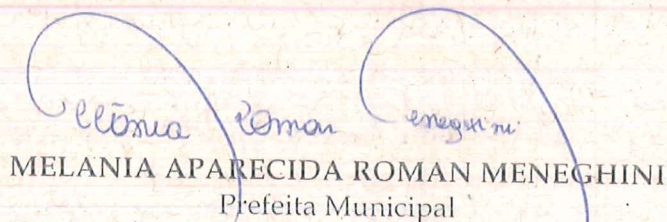 Melânia Roman Meneghini
MELANIA APARECIDA ROMAN MENEGHINI
Prefeita Municipal